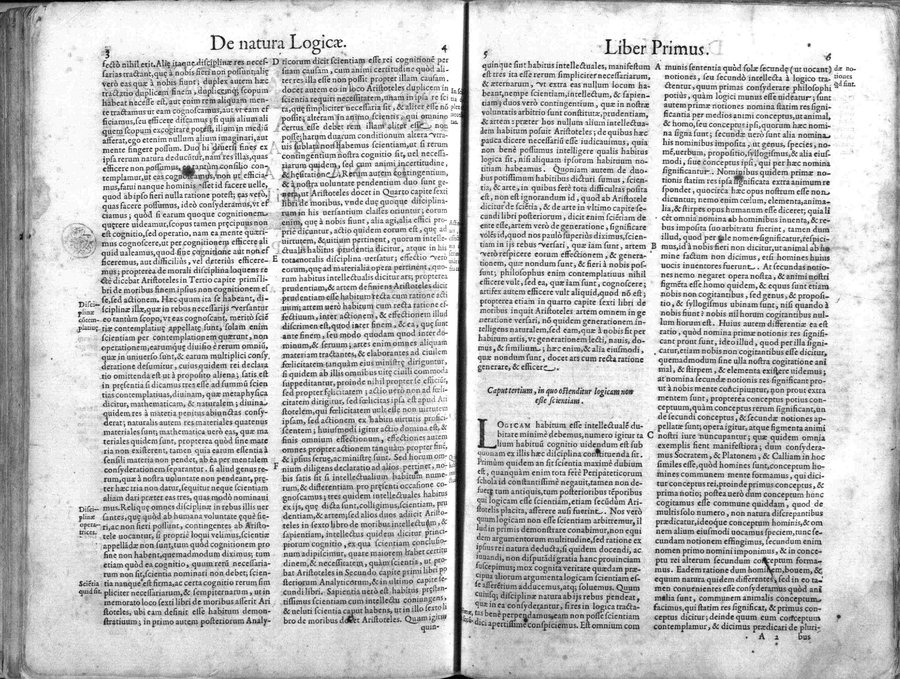 De natura Logicæ.
3
4
fectò nihil erit. Aliæ itaque disciplinæ res neces-
sarias tractant, quæ à nobis fieri non possunt; aliæ
verò eas quæ à nobis fiunt; duplex autem hæc
tractatio duplicem finem, duplicem{q}; scopum
habeat necesse est, aut enim rem aliquam men-
te tractamus ut eam cognoscamus, aut ut eam ef
ficiamus, seu efficere discamus; si quis alium ali
quem scopum excogitare potest, illum in mediū
afferat, ego etenim nullum alium imaginari, aut
mente fingere possum. Duo hi diversi fines ex
ipsa rerum natura deducuntur, nam res illas, quas
efficere non possumus,
templamur, ut eas cognoscamus, non ut efficia-
mus, fatui nanque hominis esset id facere velle,
quod ab ipso fieri nulla ratione potest, eas verò,
quas facere possumus, ideo consyderamus, vt ef
ciamus; quòd si earum quoque cognitionem
quærere videamur, scopus tamen præcipuus non
est cognitio, sed operatio, nam ea mente quæri-
mus cognoscere, ut per cognitionem efficere ali
quid valeamus, quod sine cognitione aut non ef-
ficeremus, aut difficiliùs, vel deteriùs efficere-
mus; propterea de morali disciplina loquens re-
ctè dicebat Aristoteles in Tertio capite primi li-
bri de moribus finem ipsius non cognitionem es
se, sed actionem. Hæc quum ita se habeant, di-
sciplinæ illæ, quæ in rebus necessarijs versantur
eo tantùm scopo, vt eas cognoscant, merito scié
tiæ contemplatiuæ appellatæ sunt, solam enim
scientiam per contemplationem quærunt, non
operationem, earumq; quum diuisio è rerum omniū,
quæ in universo sunt, & earum multiplici consy
deratione desumatur, cuius quidem rei declara
tio omittenda est ut à proposito aliena; satis est
in præsentia si dicamus tres esse ad summū scien
tias contemplatiuas, diuinam, quæ metaphysica
dicitur, mathematicam, & naturalem; diuina
quidem res à materia penitus abiunctas consy-
derat; naturalis autem res materiales quatenus
materiales sunt; mathematica verò eas, quæ ma
teriales quidem sunt, propterea quòd sine mate
ria non existerent, earum tamen essentia à sensili
materia non pendet, ab ea per mentalem
consyderationem separantur. si aliud genus re-
rum, quæ à nostra voluntate non pendeant, præ
ter hæc tria non datur, sequitur nonque scientiam
aliam dari præter eas tres, quas modò nominaui
mus. Reliquæ omnes disciplinæ in rebus illis ver
santes, quæ quòd ab humana voluntate queāt fie
ri, ac non fieri possunt, contingentes ab Aristo-
tele vocantur, si propriè loqui velimus, scientiæ
appellādæ non sunt, tum quòd cognitionem pro
fine non habent, quemadmodum diximus; tum
etiam quòd ea cognitio, quum rerū necessaria-
rum non sit, scientia nominari non debet; scien-
tia nanque est firma, ac certa cognitio rerum sim
pliciter necessariarum, & sempiternarum, ut in
memorato loco sexti libri de moribus asserit Ari
stoteles, ubi eam definit esse habitum demon-
stratiuum; in primo autem posteriorum Analy-
Disci-
plinæ
cōtem-
platiuæ.
Disci-
plinæ
opera-
trices.
Sciētia
quid sit.
D
E
F
ticorum dicit scientiam esse rei cognitionē per
suam causam, cum animi certitudine quòd ali-
ter ea res non possit propter illam causam.
docet autem eo in loco Aristoteles duplicem in
scientia requiri necessitatem, unam in ipsa re sci
ta, quæ simpliciter necessaria sit, & aliter esse nō
possit; alteram in animo scientis, qui omnino
certus esse debet rem illam aliter esse non
posse; harum duarum conditionum altera vtra-
uis sublata non habemus scientiam, ut si rerum
contingentium nostra cognitio sit, vel necessa-
riarum quidem, sed cum animi incertitudine,
& hæsitatione. Rerum autem contingentium,
& à nostra voluntate pendentium duo sunt ge-
nera, ut Aristoteles docet in Quarto capite sexti
libri de moribus, vnde duæ quoque disciplina-
rum in his versantium classes oriuntur; eorum
enim, quæ à nobis fiunt, alia agi, alia effici pro-
priè dicuntur, actio quidem eorum est, quæ ad
virtutem, & uitium pertinent, quorum intelle-
ctualis habitus prudentia vocatur, atque in his
tota moralis disciplina versatur; effectio verò
eorum, quæ ad materialia opera pertinent, quo-
rum habitus intellectualis dicitur ars; propterea
prudentiam, & artem definiens Aristoteles dicit
prudentiam esse habitum recta cum ratione acti
uum; artem verò habitum cum recta ratione ef-
fectiuum, inter actionem, & effectionem illud
discrimen est, quod inter finem, & ea, quæ sunt
ante finem, seu modo quodam quod inter do-
minum, & seruum; artes enim omnes aliquam
materiam tractantes, & elaborantes ad ciuilem
fœlicitatem tanquam eius ministræ diriguntur,
si quidem ab illis omnibus vitæ ciuili commoda
suppeditantur, proinde nihil propter se efficiūt,
sed propter fœlicitatem; actio verò non ad fœli-
citatem dirigitur, sed fœlicitas ipsa est apud Ari
stotelem, qui fœlicitatem uult esse non uirtutem
ipsam, sed actionem secundum uirtutem; actio
igitur secundum uirtutem domina est, & finis
omnium effectionum, effectiones autem
omnes propter actionem tanquam propter finē
& ipsius seruæ, ac ministræ sunt. Sed horum om-
nium diligens declaratio ad alios pertinet, no-
bis satis sit si intellectualium habituum naturā
rum, & differentiam pro præsenti occasione co-
gnoscamus; tres quidem intellectuales habitus
ex ijs, quæ dicta sunt, colligimus, scientiam, pru
dentiam, & artem; sed alios duos adijcit Aristo-
teles in sexto libro de moribus intellectum, &
sapientiam, intellectus quidem dicitur princi-
piorum cognitio, ex qua scientiam conclusio-
num adipiscimur, quare maiorem habet certitu
dinem, & necessitatem, quàm scientia, ut pro-
bat Aristoteles in Secundo capite primi libri po
steriorum Analyticorum, & in ultimo capite se
cundi libri. Sapientia uerò est habitus præstan-
tissimus scientiam cum intellectu coniungens,
& neluti scientia caput habens, ut in illo sexto li
bro de moribus docet Aristoteles. Quam igitur
quin-
Liber Primus.
5
6
quinque sint habitus intellectuales, manifestum
est tres ita esse rerum simpliciter necessariarum,
& æternarum, vt extra eas nullum locum ha-
beant, nempe scientiam, intellectum, & sapien-
tiam; duos verò contingentium, quæ in nostræ
voluntatis arbitrio sunt constitutæ, prudentiam,
& artem: præter hos nullum alium intellectua-
lem habitum posuit Aristoteles; de quibus hæc
pauca dicere necessarij esse iudicauimus, quia
non benè possumus intelligere qualis habitus
logica sit, nisi aliquam ipsorum habituum no-
titiam habeamus. Quoniam autem de duo-
bus potissimùm habitibus dicturi sumus, scien-
tia, & arte, in quibus ferè tota difficultas posita
est, non est ignorandum id, quod ab Aristotele
dicitur de sciētia, & de arte in vltimo capite se-
cundi libri posteriorum, dicit enim sciētiam de
ente esse, artem verò de generatione, significare
volēs id, quod nos pauló superius diximus, scien-
tiam in ijs rebus versari, quæ iam sunt, artem
verò respicere eorum effectionem, & genera-
tionem, quæ nondum sunt, & fieri à nobis pos-
sunt; philosophus enim contemplatiuus nihil
efficere vult, sed ea, quæ iam sunt, cognoscere;
artifex autem efficere vult aliquid, quod nō est;
propterea etiam in quarto capite sexti libri de
moribus inquit Aristoteles artem omnem in ge
neratione versari, nō quidem generationem in-
telligens naturalem, sed eam, quæ à nobis fit per
habitum artis, vt generationem lecti, nauis, do-
mus, & similium. hæc enim, & alia eiusmodi,
quæ nondum sunt, docet ars cum recta ratione
generare, & efficere.
Caput tertium, in quo ostenditur logicam non
esse scientiam.
LOGICAM habitum esse intellectualē du-
bitare minimè debemus, numero igitur ta
lium habituū cognitio uidendum est sub
quonam ex illis hæc disciplina constituenda sit.
Primùm quidem an sit scientia maximè dubium
est, quanquàm enim tota ferè Peripateticorum
schola id constantissimè negauit, tamen non de-
fuere tum antiqui, tum posterioribus tēporibus
qui logicam esse scientiam, etiam secūdum Ari-
stotelis placita, asserere ausi fuerint. Nos verò
quum logicam non esse scientiam arbitremur, il
lud in primis demonstrare conabimur, non equi
dem argumentorum multitudine, sed ratione ex
ipsius rei natura deducta, si quidem docendi, ac
inuandi, non disputandi gratia hanc prouinciam
suscepimus; mox cognita veritate quædam præ-
cipua aliorum argumenta logicam scientiam es-
se asserētium adducemus, atq; soluemus. Quum
cuiusq; disciplinæ natura ab ijs rebus pendeat,
quæ in ea consyderantur, si res in logica tracta-
tas benè perpendamus, eam non posse scientiam
dici apertissimè conspiciemus. Est omnium com
A
B
C
munis sententia quòd solæ secundæ (ut uocant)
notiones, seu secundò intellecta à logico tra-
ctentur, quum primas consyderare philosophi
potiùs, quàm logici munus esse uideatur; sunt
autem primæ notiones nomina statim res signifi-
cantia per medios animi conceptus, ut animal,
& homo, seu conceptus ipsi, quorum hæc nomi-
na signa sunt; secundæ verò sunt alia nomina,
his nominibus imposita, ut genus, species, no-
men, uerbum, propositio, syllogismus, & alia eius-
modi, siue conceptus ipsi, qui per hæc nomina
significantur. Nominibus quidem primæ no-
tionis statim res ipsa significata extra animum re
spondet, quocirca hæc opus nostrum esse non
dicuntur; nemo enim cœlum, elementa, anima-
lia, & stirpes opus humanum esse diceret; quia li
cèt omnia nomina ab hominibus inuenta, & re-
bus imposita suo arbitratu fuerint, tamen dum
illud, quod per nomen significatur, respici-
mus, id à nobis fieri non dicitur, ut animal ab ho
mine factum non dicimus, etsi homines huius
uocis inuentores fuerint. At secundas notio-
nes nemo negaret opera nostra, & animi nostri
figmēta esse; homo quidem, & equus sunt etiam
nobis non cogitantibus, sed genus, & proposi-
tio, & syllogismus ubinam sunt, nisi quando à
nobis fiunt? à nobis nihil horum cogitantibus nul-
lum horum est. Huius autem differentiæ ea est
ratio, quòd nomina primæ notionis res signifi-
cant prout sunt, ideo illud, quod per illa signifi-
catur, etiam nobis non cogitantibus esse dicitur,
quemadmodum sine ulla nostra cogitatione ani
mal, & stirpem, & elementa existere uidemus;
at nomina secundæ notionis res significant pro-
ut à nobis mente concipiuntur, non prout extra
mentem sunt; propterea potius conceptus con-
ceptuum, quàm conceptus rerum significant, un
de secundi conceptus, & secundæ notiones appel
latæ sunt; opera igitur, atque figmenta animi
nostri iure nuncupantur; quæ quidem omnia
exemplis fient manifestiora; dum consydera-
mus Socratem, & Platonem, & Calliam in hoc
similes esse, quòd homines sunt, conceptum ho-
minis communem mente formamus, qui dici-
tur conceptus rei, proinde primus conceptus, &
prima notio; postea uerò dum conceptum hunc
cognoscimus esse communē quiddam, quod de
multis solo numero, non natura discrepantibus
prædicatur, ideoque conceptum hominis, & om-
nem alium eiusmodi uocamus speciem, tunc se-
cundam notionem effingimus, secundum enim
nomen primo nomini imponimus, & in conce-
ptu rei alterum secundum conceptum forma-
mus. Eadem ratione dum hominem, bouem, &
equum natura quidem differentes, sed in eo ta-
men conuenientes esse consyderamus quòd ani
malia sunt, communem animalis conceptum
facimus, qui statim res significat, & primus con-
ceptus dicitur; deinde quum eum conceptum
contemplamur, & dicimus prædicari de pluri-
A 2 bus